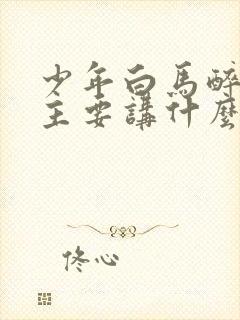 少年白馬醉
主要講什麼
佟心